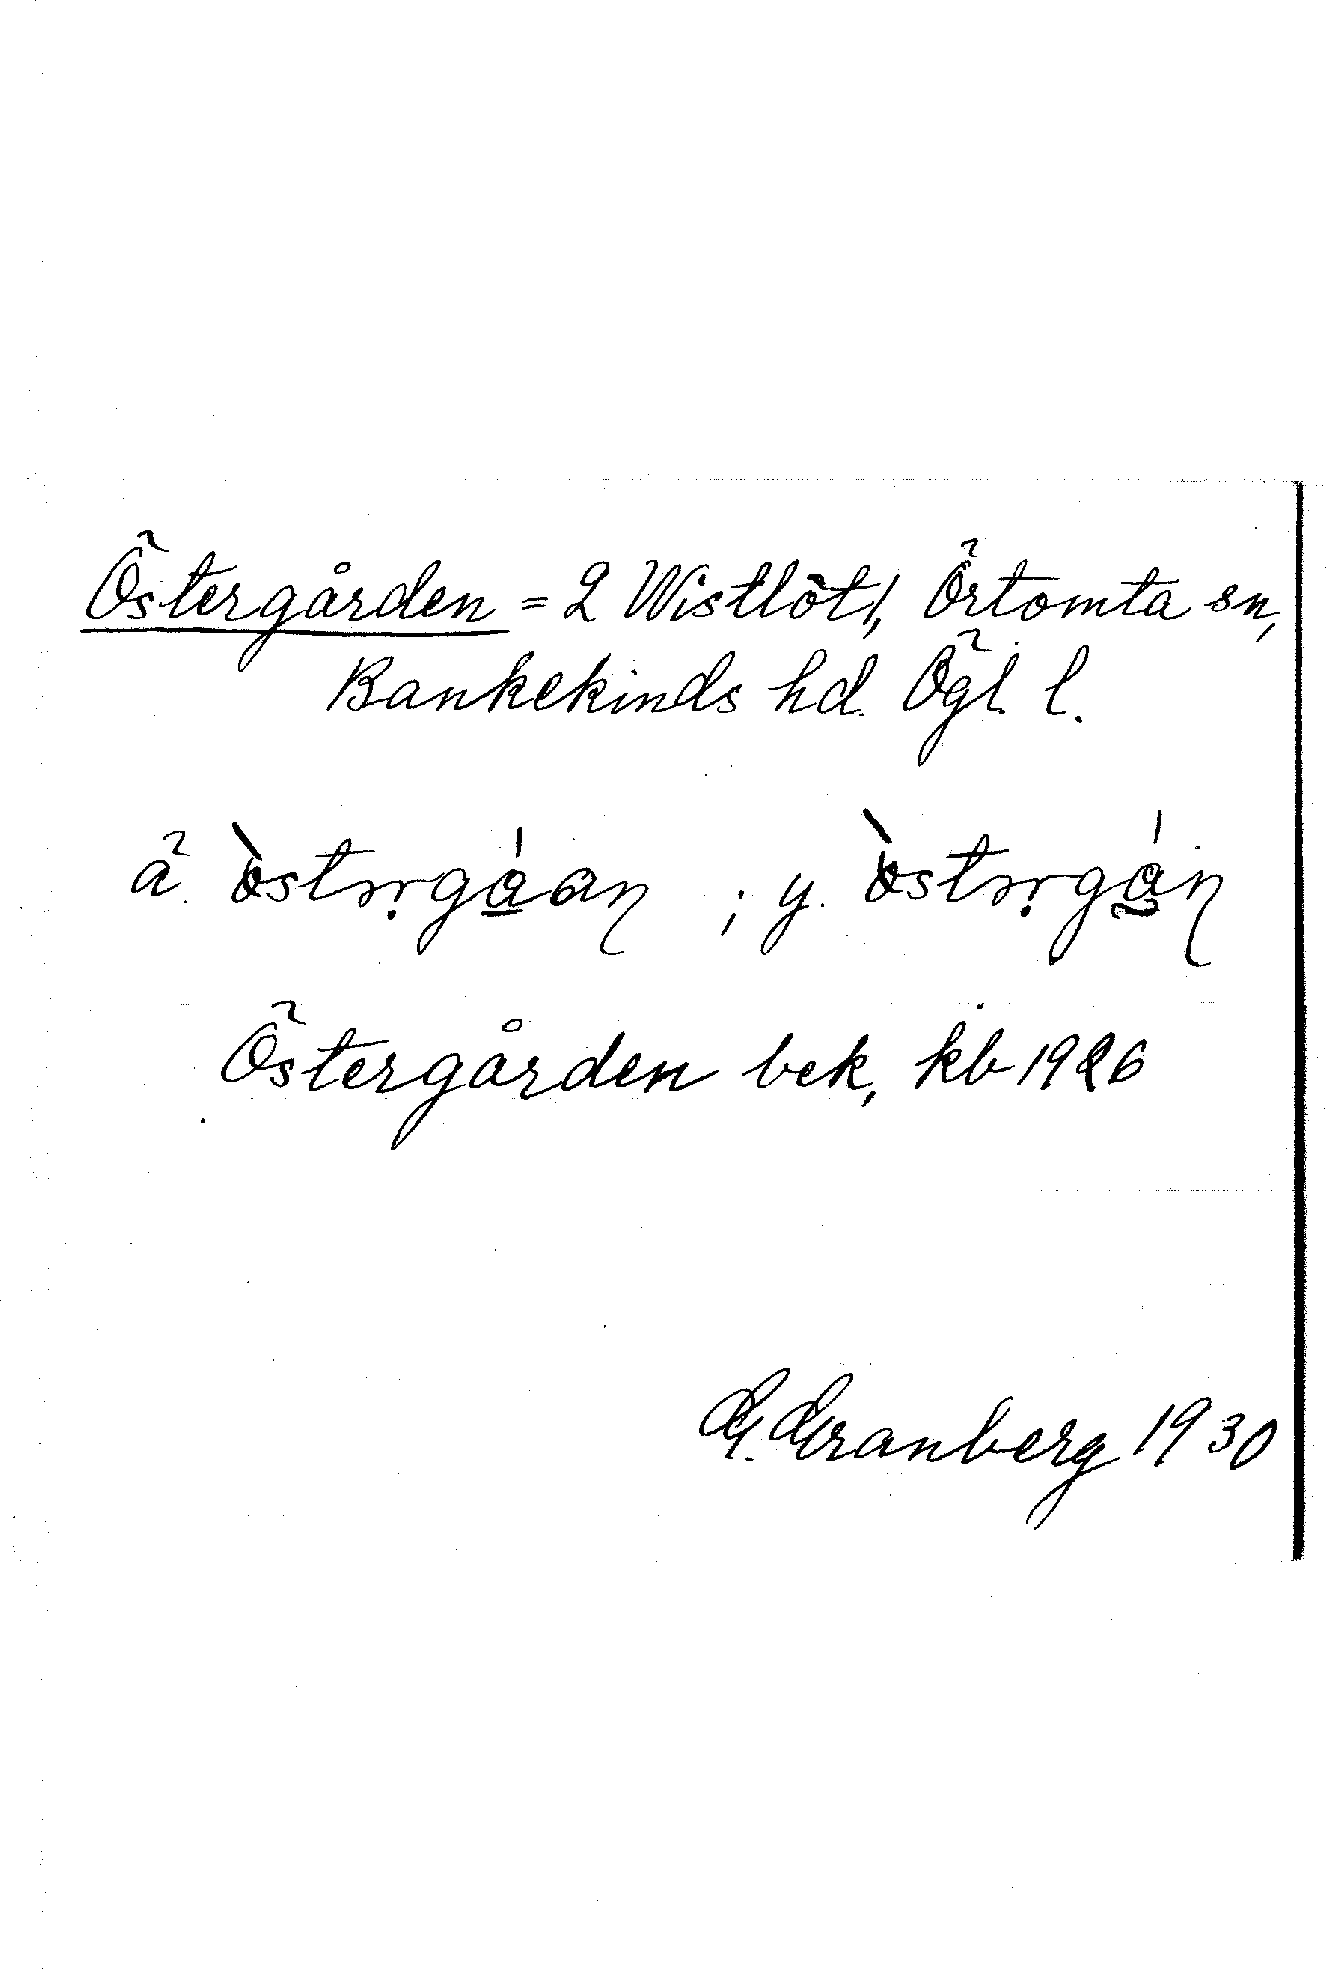 Östergården = 2 Wistlöt, Örtomta sn,
Bankekinds hd. Ögl. l.
ä. ; y.
Östergården bek, kb 1926
G. Granberg 1930